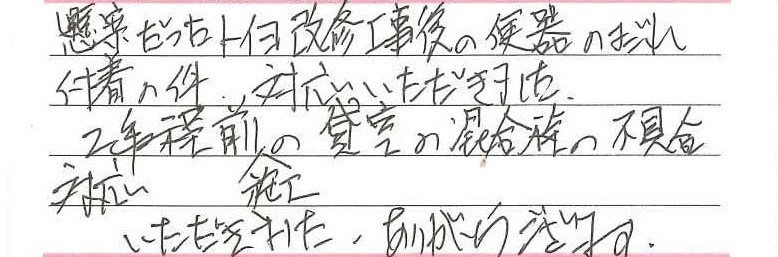 懸案だったトイレ改修工事後の便器のよごれ
付着の件、対応いただきました。
2年程前の貸室の混合栓の不具合
対応 施工
いただきました、ありがとうございます。